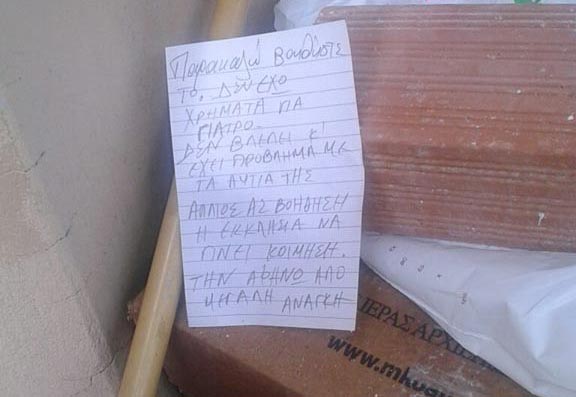 Παρακαλώ Βοηθύστε
ΤΟ. ΔΕΝ ΕΧΟ
ΧΡΗΜΑΤΑ ΓΙΑ
ΓΙΑΤΡΟ.
ΔΕΝ ΒΛΕΠΕΙ Κ'
ΕΧΕΙ ΠΡΟΒΛΗΜΑ ΜΕ
ΤΑ ΑΥΤΙΑ ΤΗΣ
ΑΛΛΙΟΣ ΑΣ ΒΟΗΘΗΣΗ
Η ΕΚΚΛΗΣΙΑ ΝΑ
ΓΙΝΕΙ ΚΟΙΜΗΣΗ.
ΤΗΝ ΑΦΗΝΩ ΑΠΟ
ΜΕΓΑΛΗ ΑΝΑΓΚΗ
ΙΕΡΑΣ ΑΡΧΙΕΠΙΣ
www.mkoap